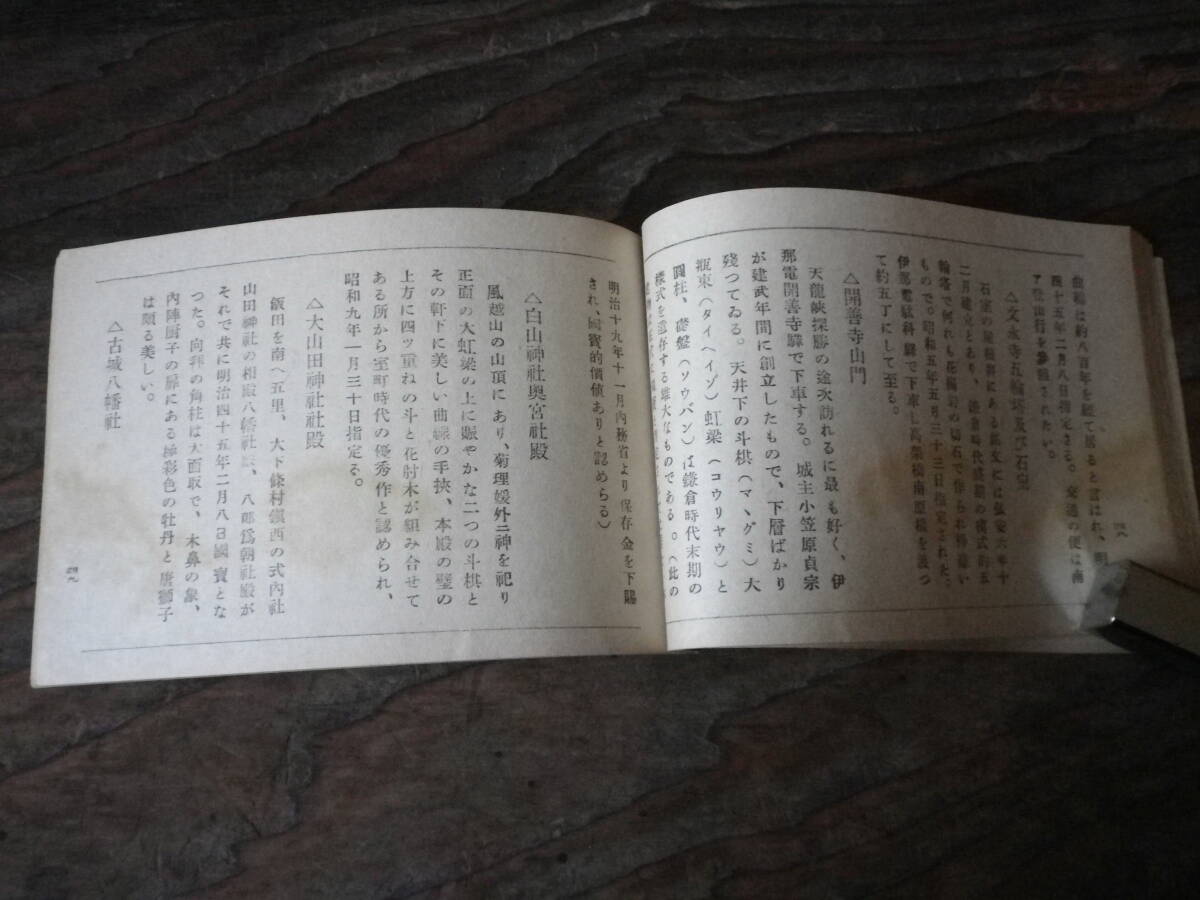 四八
は約八百年を經て居ると言はれ、明
四十五年二月八日指定さる。交通の便は南
△文永寺五輪塔及び石室
石室の
もので。昭和五年五月三十三日指定された。
て約五丁にして至る。
△開善寺山門
天龍峽探勝の途次訪れるに最も好く、伊
那電開善寺驛で下車する。城主小笠原貞宗
が建武年間に創立したもので、下層ばかり
殘つてゐる。天井下の斗栱（マヽグミ）大
瓶束（タイヘイヅ）虹梁（コウリヤウ）と
圓柱、礎盤（ソウバン）は鎌倉時代末期の
樣式を遺存する雄大なものである。（此の
明治十九年十一月内務省より保存金を下賜
され、國寳的價値ありと認めらる）
△白山神社奥宮社殿
風越山の山頂にあり、菊理媛外二神を祀り
正面の大虹梁の上に賑やかな二つの斗栱と
その軒下に美しい曲線の手挾、本殿の壁の
上方に四ツ重ねの斗と花肘木が組み合せて
ある所から室町時代の優秀作と認められ、
昭和九年一月三十日指定る。
△大山田神社社殿
飯田を南へ五里、大下條村鎭西の式内社
山田神社の相殿八幡社殿、八郎爲朝社殿が
それで共に明治四十五年二月八日國寳とな
つた。向拜の角柱は大面取で、木鼻の象、
内陣厨子の扉にある極彩色の牡丹と唐獅子
は頗る美しい。
△古城八幡社
四九